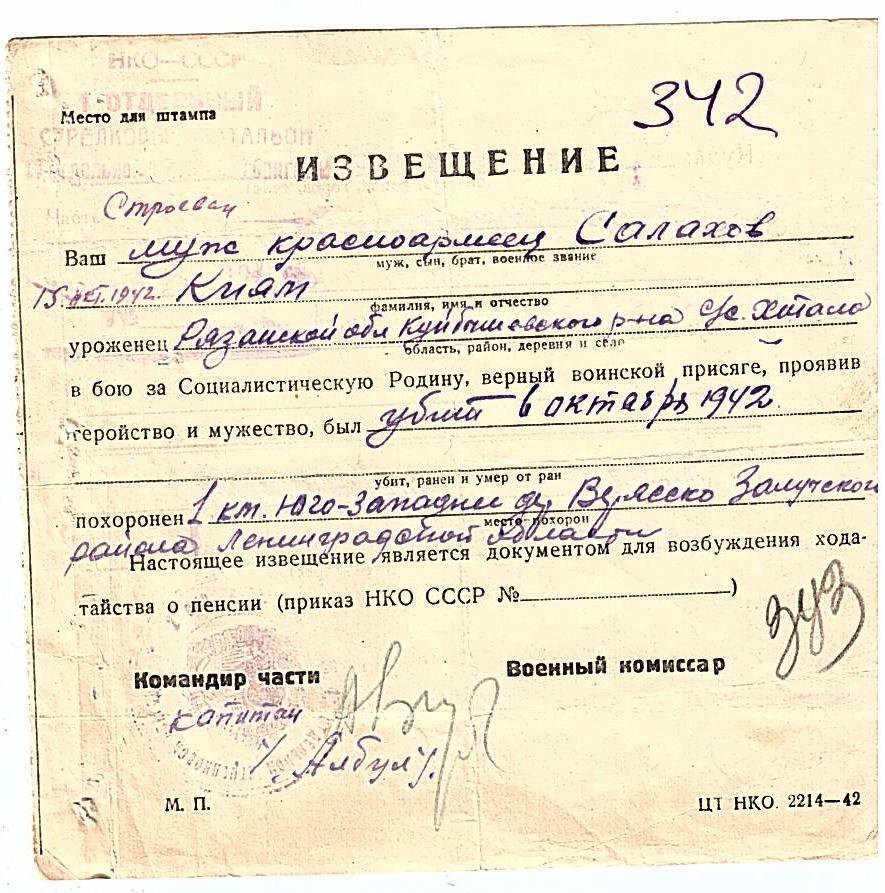 НКО—СССР
1 ОТДЕЛЬНЫЙ
Место для штампа
СТРЕЛКОВЫЙ БАТАЛЬОН
342
ИЗВЕЩЕНИЕ
Ваш муж красноармеец Салахов
муж, сын, брат, военное звание
15 окт. 1942. Киям
фамилия, имя и отчество
уроженец Рязанской обл Куйбышевского р-на
область, район, деревня и село
в бою за Социалистическую Родину, верный воинской присяге, проявив
геройство и мужество, был убит в октябре 1942
убит, ранен и умер от ран
похоронен 1 км. Юго-Западнее д. Вересско Залучского
место похорон
района Ленинградской области
Настоящее извещение является документом для возбуждения хода-
тайства о пенсии (приказ НКО СССР №)
Командир части
Военный комиссар
капитан
М. П.
ЦТ НКО. 2214—42